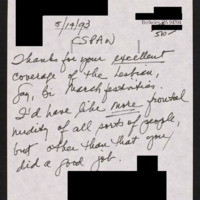 5/19/93
CSPAN
Thanks for your excellent
coverage of the Lesbian,
Gay, Bi March festivities.
I'd have like more frontal
nudity of all sorts of people,
but other than that you
did a good job.